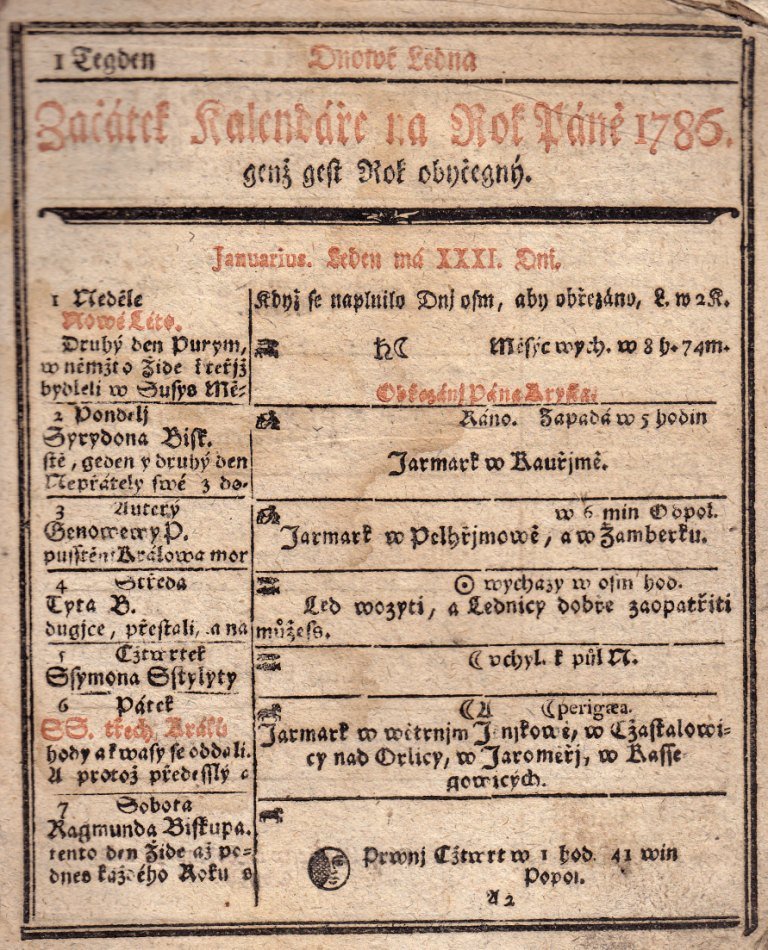 1 Tegden
Dnowé Ledna
Začátek Kalendáře na Rok Páně 1786.
genž gest Rok obyčegný.
Januarius. Leden má XXXI. Dnj.
1 Neděle
Nowé Léto.
Druhý den Purym,
w němžto Židé kteřjž
bydleli w Susys Mě-
Když se naplnilo Dnj osm, aby obřezáno, L. w 2 K.
♄☾ Měsýc wych. w 8 h. 74m.
Obřezánj Pána Krysta.
2 Pondělj
Spyrydona Bisk.
stě, geden y druhý den
Nepřátely swé 3 do-
Ráno. Zapadá w 5 hodin
Jarmark w Kauřjmě.
3 Auterý
Genowewy P.
pusstěnj Králowa mor
w 6 min Odpol.
Jarmark w Pelhřjmowě, a w Žamberku.
4 Středa
Tyta B.
dugjce, přestali, a na
☉ wychazy w osm hod.
Led wozyti, a Lednicy dobře zaopatřiti
můžess.
5 Cžtwrtek
Ssymona Sstylyty
☾ vchyl. k půl N.
6 Pátek
SS. třech Králů
hody a kwasy se oddali.
A protož předesslý a
☾ ☾ perigæa.
Jarmark w wětrnjm Jenjkowě, w Cžastalowi-
cy nad Orlicy, w Jaroměřj, w Kasse
gowicých.
7 Sobota
Ragmunda Biskupa.
tento den Židé až po-
dnes každého Roku s
Prwnj Cžtwrt w 1 hod. 41 win
Popol.
A 2